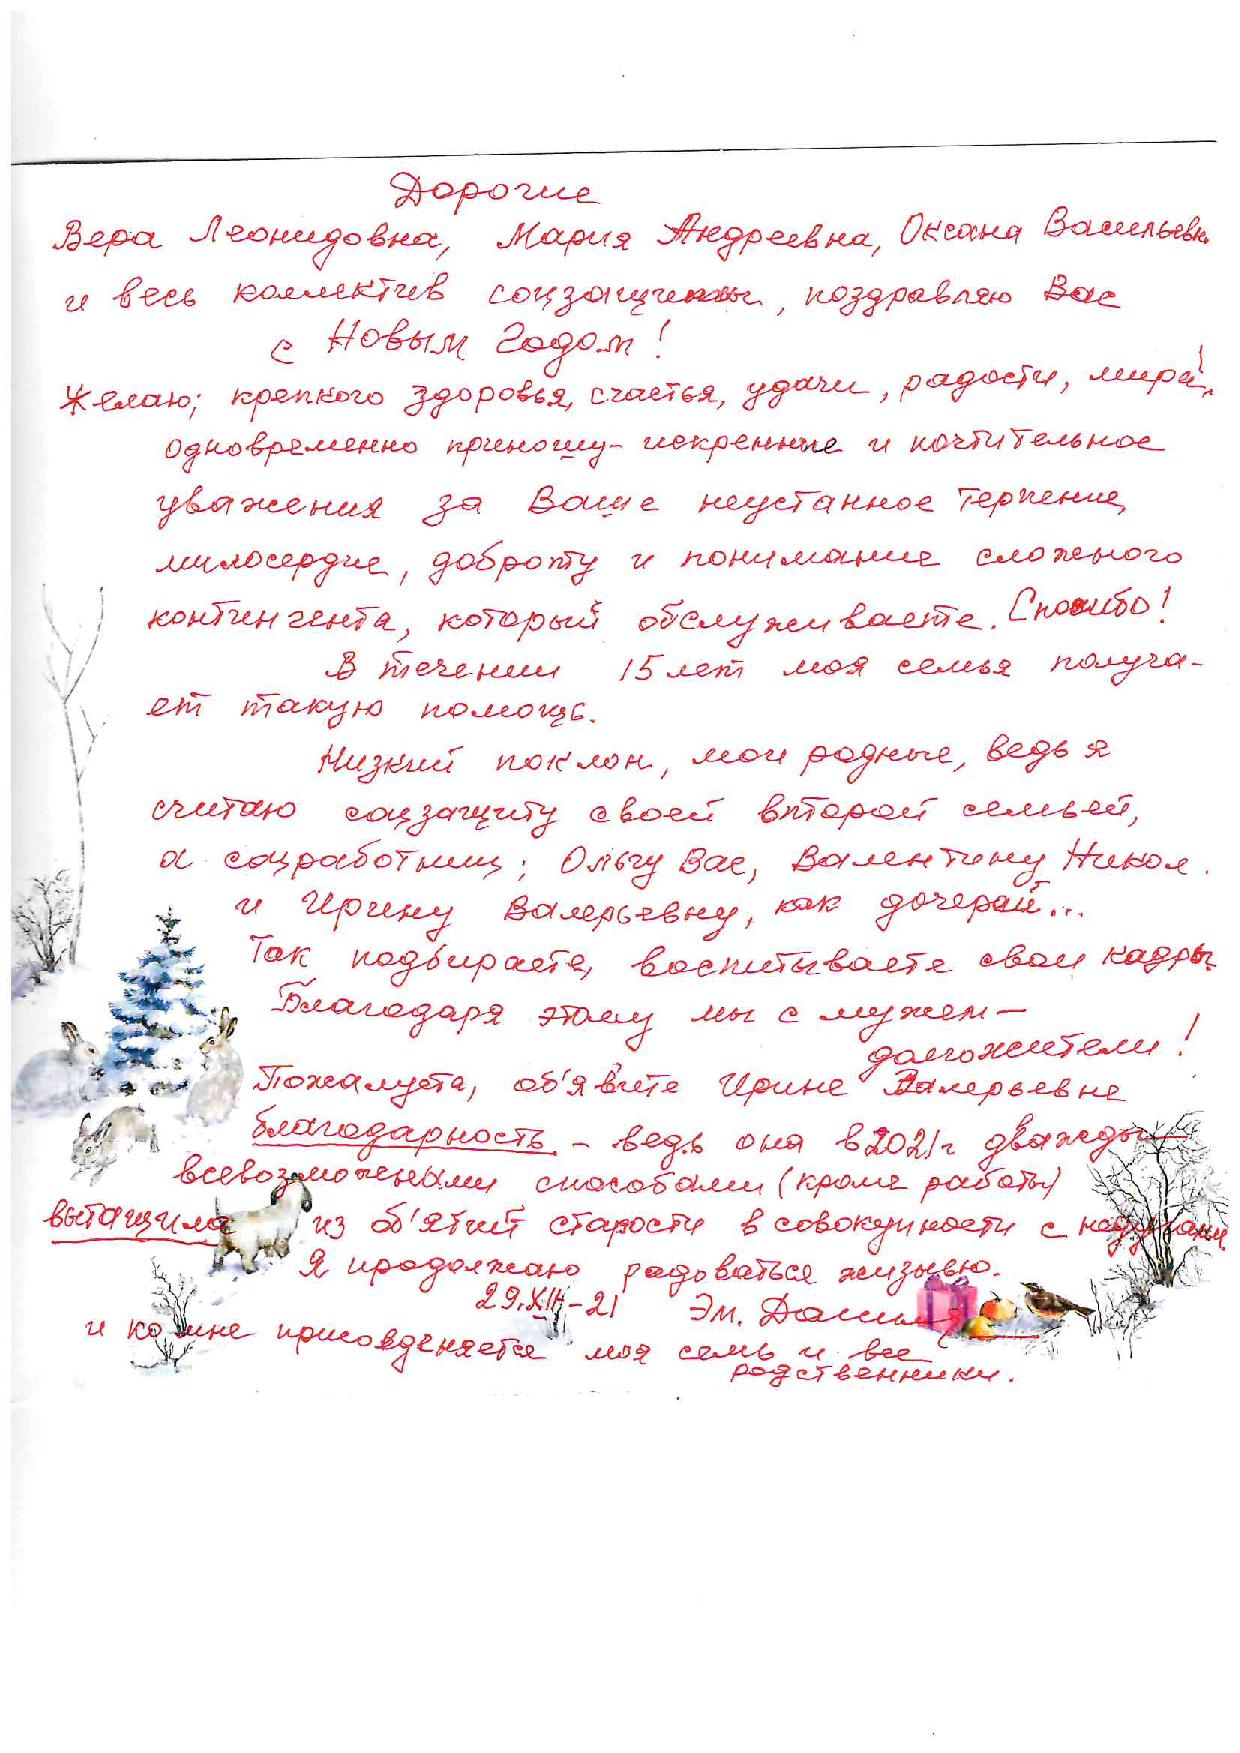 Дорогие
Вера Леонидовна, Мария Андреевна, Оксана Васильевн.
и весь коллектив соцзащиты, поздравляю Вас
с Новым Годом!
Желаю; крепкого здоровья, счастья, удачи, радости, мира!,
одновременно приношу - искренние и почтительное
уважения за Ваше неустанное терпение,
милосердие, доброту и понимание сложного
контингента, который обслуживаете. Спасибо!
В течении 15 лет моя семья получа-
ет такую помощь.
Низкий поклон, мои родные, ведь я
считаю соцзащиту своей второй семьей,
а соцработниц; Ольгу Вас, Валентину Никол.
и Ирину Валерьевну, как дочерей...
Так подбираете, воспитываете свои кадры.
Благодаря этому мы с мужем —
долгожители!
Пожалуста, об'явите Ирине Валерьевне
благодарность. - ведь она в 2021г дважды
всевозможными способами (кроме работы)
вытащила из об'ятий старости в совокупности с недугами.
Я продолжаю радоваться жизнью.
29.XII-21 Эм.
и ко мне присоединяется моя семь и все
родственники.